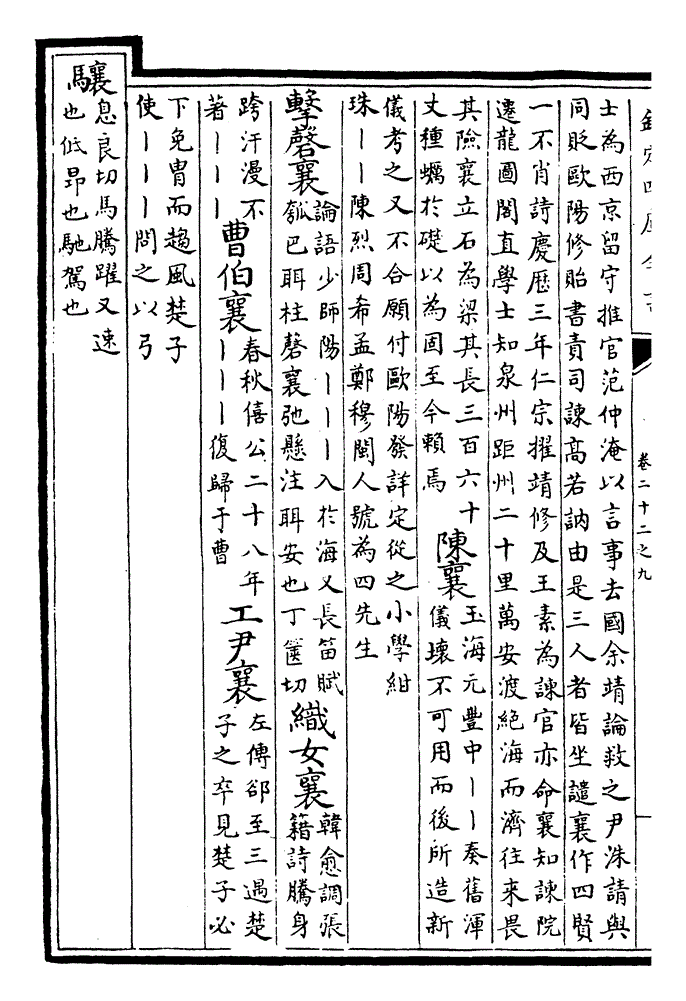 欽定四庫全書
卷二十二之九
士為西京留守推官范仲淹以言事去國余靖論救之尹洙請與
同貶歐陽修貽書責司諫高若訥由是三人者皆坐譴襄作四賢
一不肖詩慶歷三年仁宗擢靖修及王素為諫官亦命襄知諫院
遷龍圖閣直學士知泉州距州二十里萬安渡絕海而濟往來畏
其險襄立石為梁其長三百六十
丈種蠣於礎以為固至今賴焉
陳襄
玉海元豐中丨丨奏舊渾
儀壞不可用而後所造新
儀考之又不合願付歐陽發詳定從之小學紺
珠丨丨陳烈周希孟鄭穆閩人號為四先生
擊磬襄
論語少師陽丨丨丨入於海又長笛賦
瓠巴聑柱磬襄弛懸注聑安也丁篋切
織女襄
韓愈調張
籍詩騰身
跨汗漫不
著丨丨丨
曹伯襄
春秋僖公二十八年
丨丨丨復歸于曹
工尹襄
左傳郤至三遇楚
子之卒見楚子必
下免冑而趨風楚子
使丨丨丨問之以弓
驤
息良切馬騰躍又速
也低昻也馳駕也